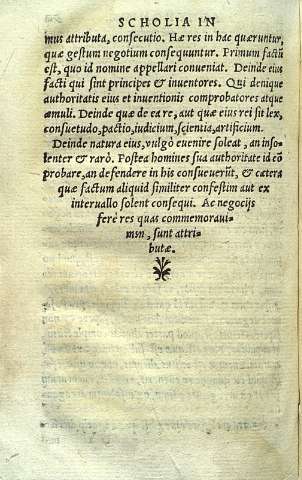 SCHOLIA IN
mus attributa, consecutio. Hæ res in hac quæruntur,
quæ gestum negotium consequuntur. Primum factũ
est, quo id nomine appellari conueniat. Deinde eius
facti qui sint principes & inuentores. Qui denique
authoritatis eius et inuentionis comprobatores atque
æmuli. Deinde quæ de ea re, aut quæ eius rei sit lex,
consuetudo, pactio, iudicium, scientia, artificium.
Deinde natura eius, vulgò euenire soleat, an inso-
lenter & rarò. Postea homines sua authoritate id cõ
probare, an defendere in his consueuerũt, & cætera
quæ factum aliquid similiter confestim aut ex
interuallo solent consequi. Ac negocijs
ferè res quas commemoraui-
mus, sunt attri-
butæ.